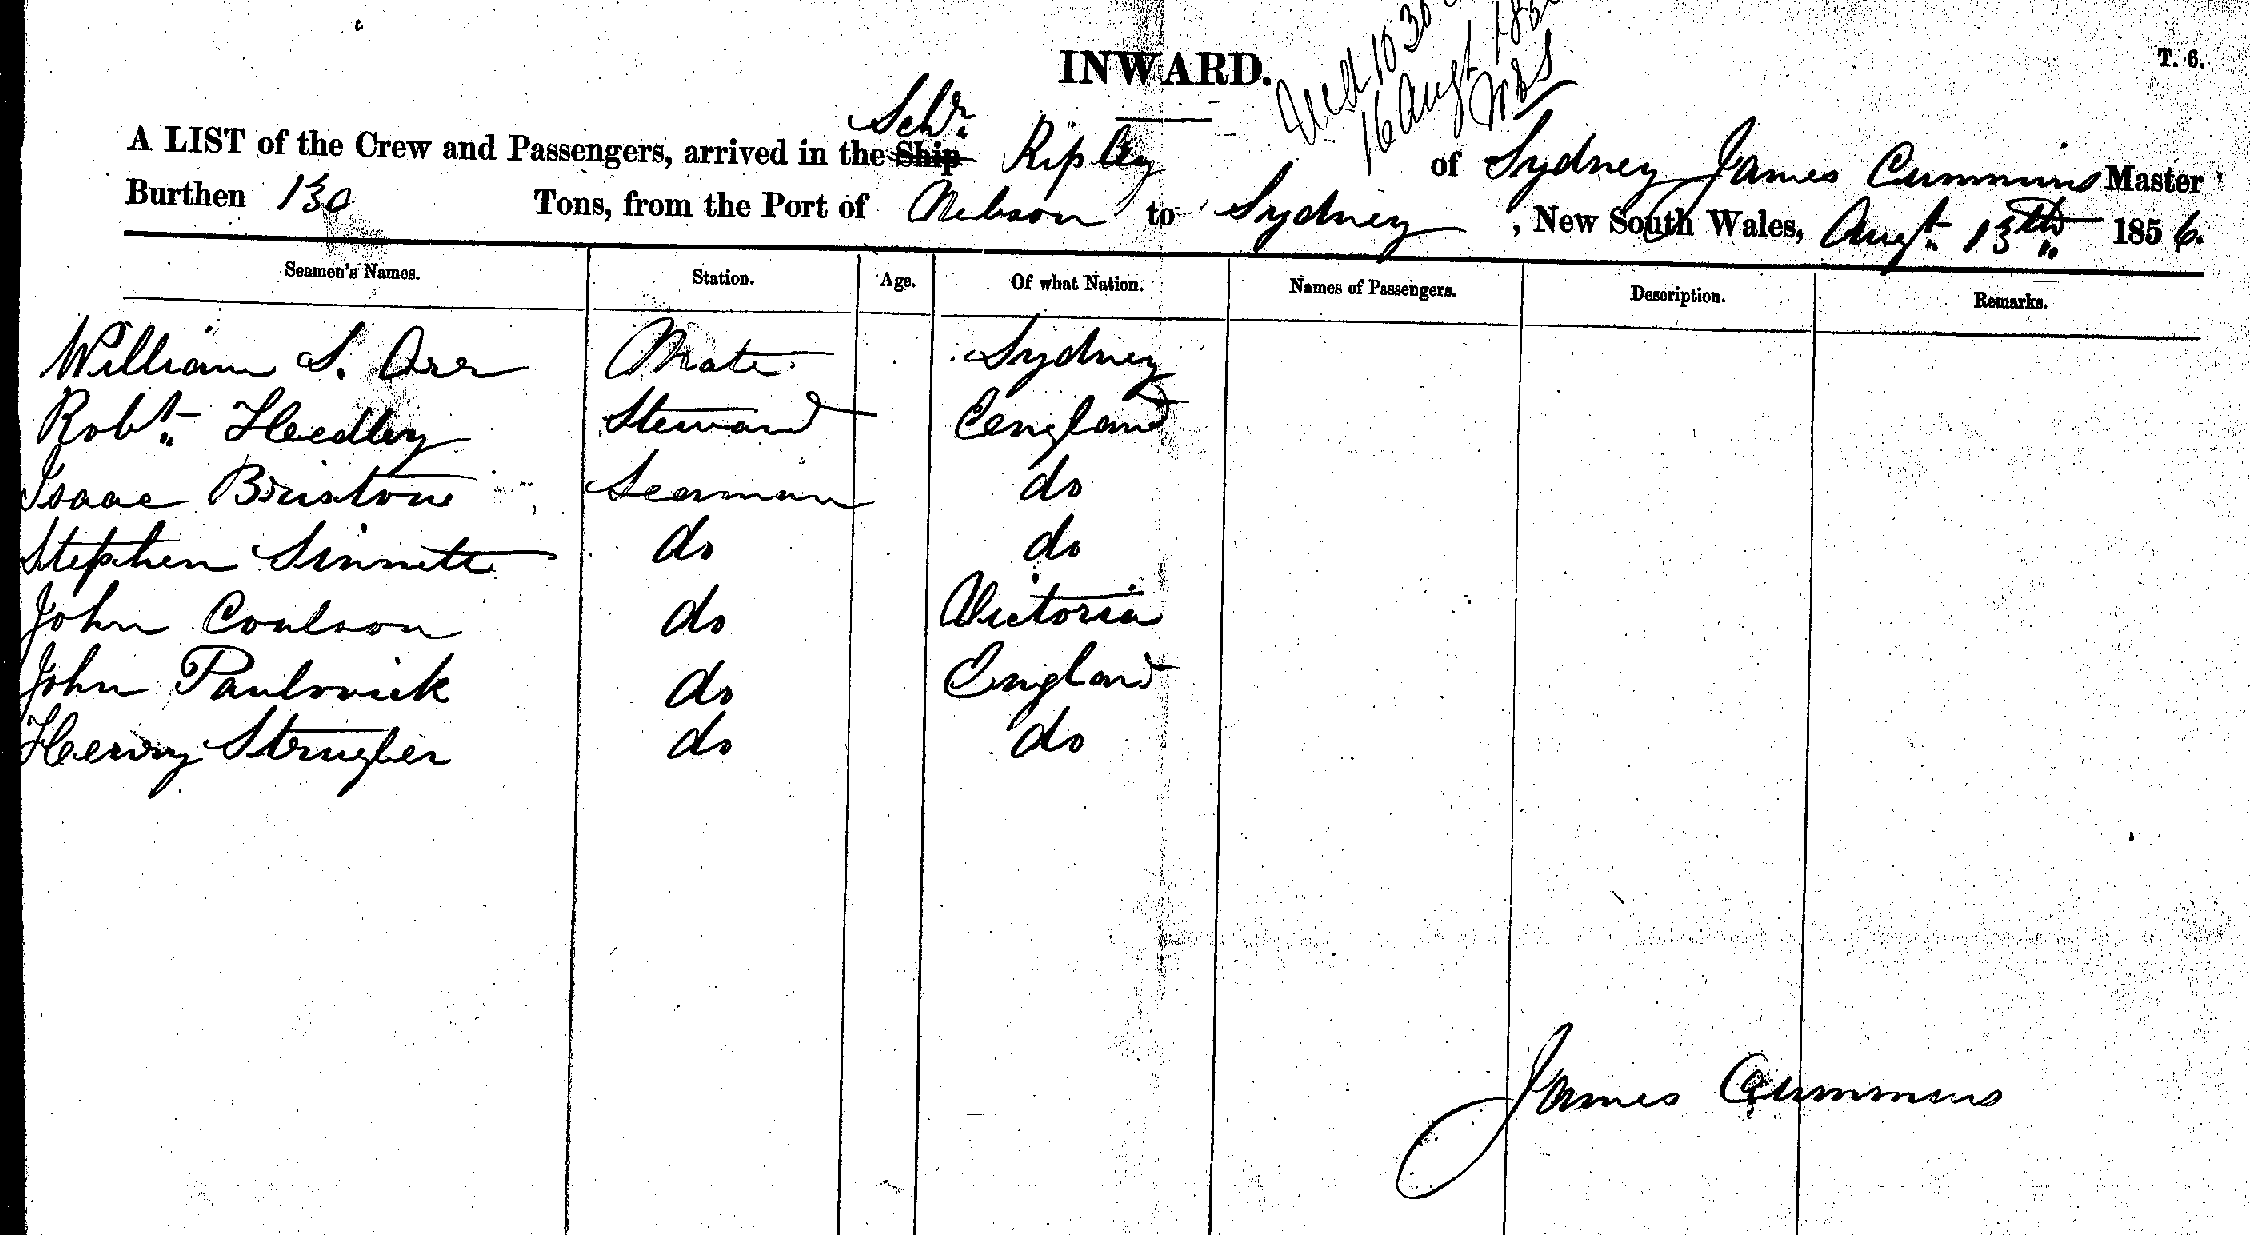 INWARD.
T. 6.
10 30
16 Augt 185
Schr.
A LIST of the Crew and Passengers, arrived in the Ship Ripley of Sydney James Cummins Master
Burthen 130 Tons, from the Port of Nelson to Sydney, New South Wales, Augt. 13th 1856.
Seamen's Names. Station. Age. Of what Nation. Names of Passengers. Description. Remarks.
William S. Orr Mate Sydney
Robt. Hedley Steward England
Isaac Seaman do
Stephen Sinnett do do
John Coulson do Victoria
John do England
Henry do do
James Cummins